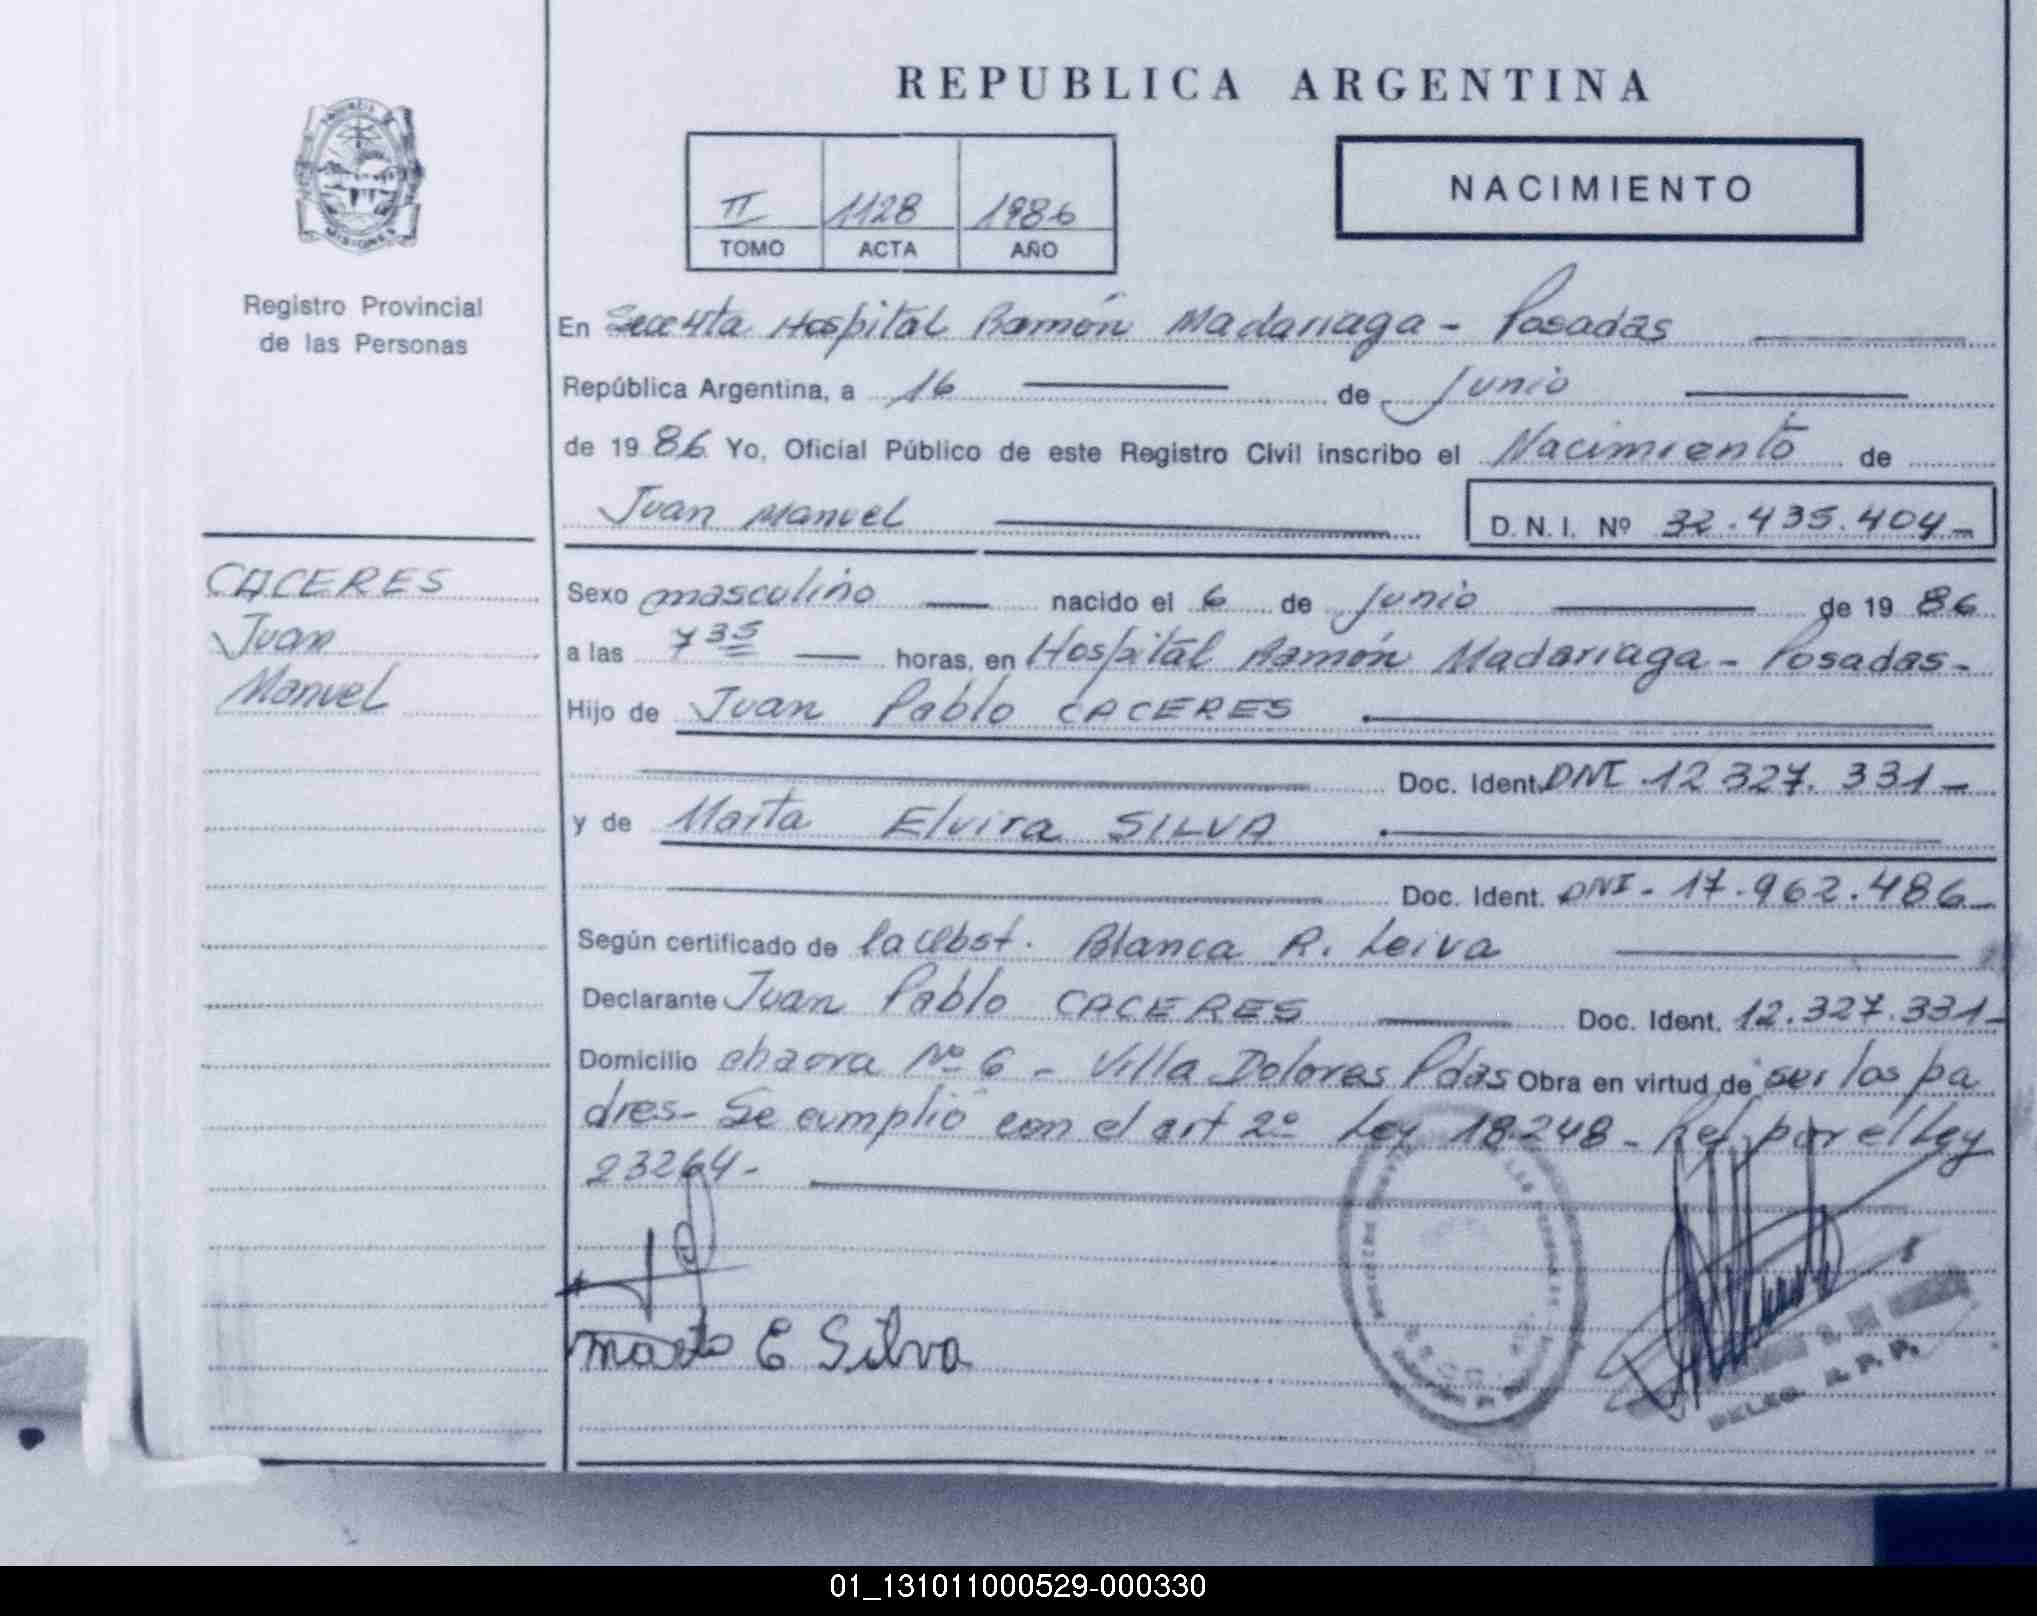 REPUBLICA ARGENTINA
PROVINCIA DE
MISIONES
Registro Provincial
de las Personas
II 1128 1986
TOMO ACTA AÑO
NACIMIENTO
En Secc 4ta Hospital Ramón Madariaga - Posadas
República Argentina, a 16 de Junio
de 1986 Yo, Oficial Público de este Registro Civil inscribo el Nacimiento de
Juan Manuel
D.N.I. Nº 32.435.404-
CACERES
Juan
Manuel
Sexo masculino nacido el 6 de Junio de 1986
a las 7 35 horas, en Hospital Ramón Madariaga - Posadas-
Hijo de Juan Pablo CACERES
Doc. Ident. DNI 12 327. 331-
y de Marta Elvira SILVA
Doc. Ident. DNI- 17.962.486-
Según certificado de la Obst. Blanca R. Leiva
Declarante Juan Pablo CACERES Doc. Ident. 12.327.331-
Domicilio chacra Nº 6 - Villa Dolores Pdas Obra en virtud de ser los pa
dres- Se cumplió con el art 2º Ley 18248- Ref por el Ley
23264-
Marta E Silva
DELEG. R. P. P.
01_131011000529-000330